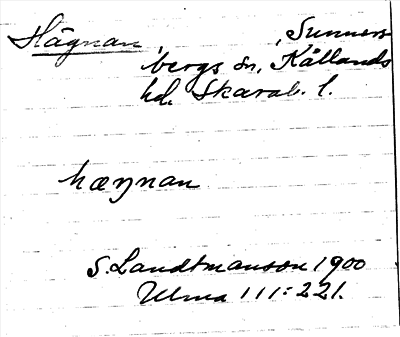 Hägnan, Sunners-
bergs sn, Kållands
hd. Skarab. l.
hæŋnan
S. Landtmanson 1900
Ulma 111:221.